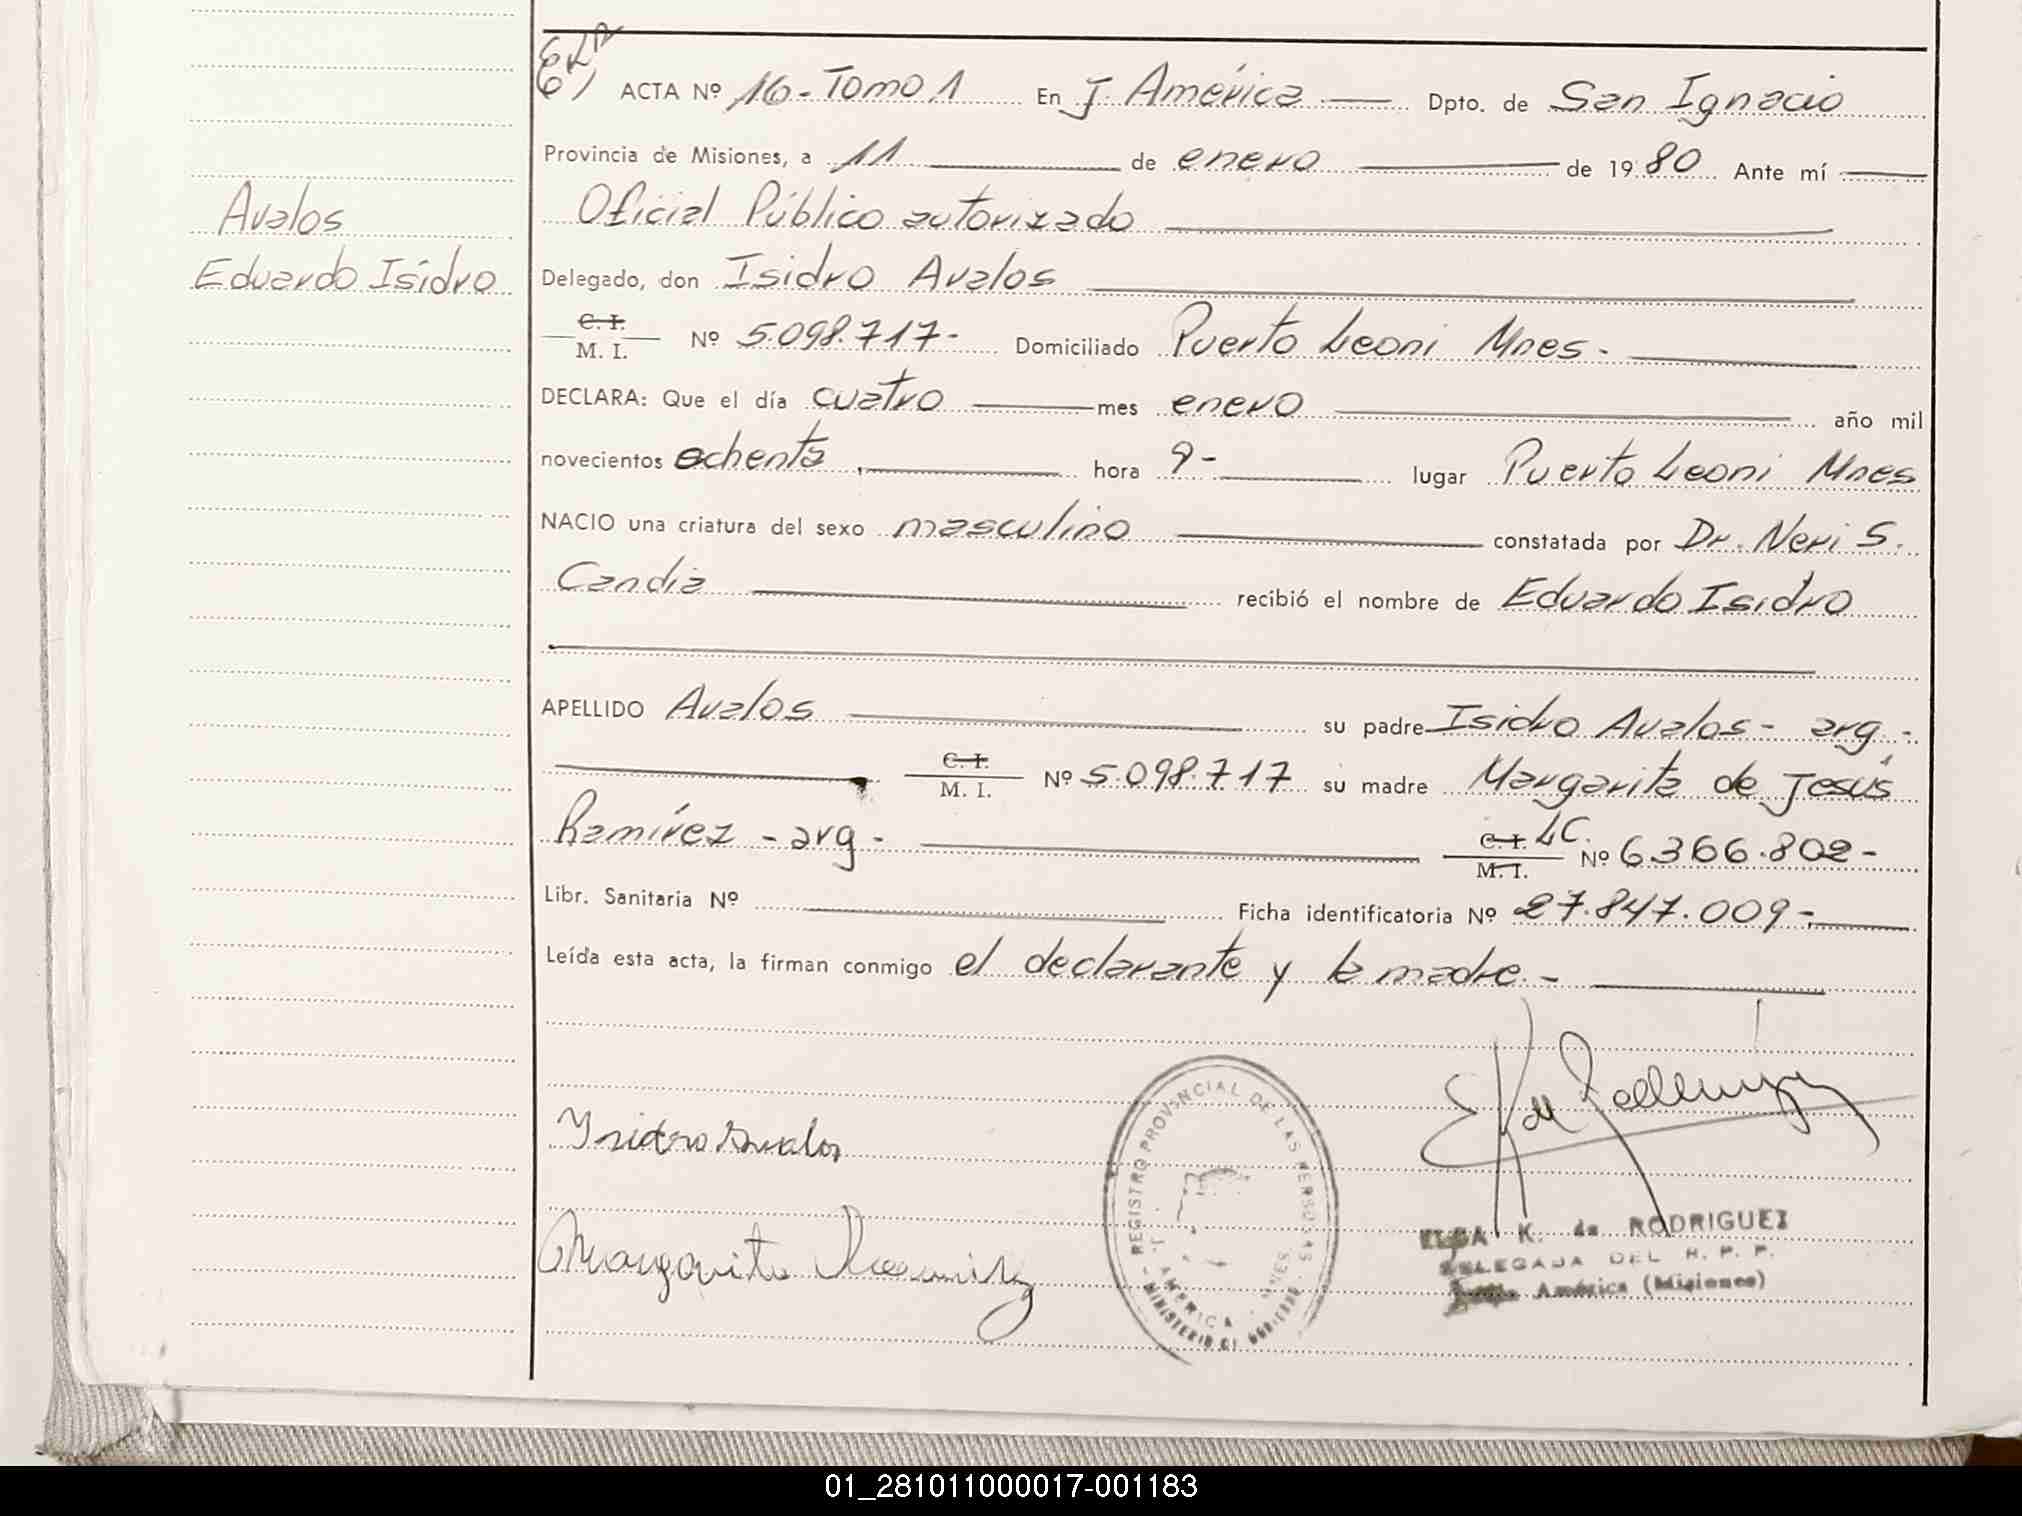 ACTA Nº 16-Tomo 1 En J. América Dpto. de San Ignacio
Provincia de Misiones, a 11 de enero de 1980 Ante mí
Oficial Público autorizado
Avalos
Eduardo Isidro
Delegado, don Isidro Avalos
C. I.
M. I. Nº 5.098.717- Domiciliado Puerto Leoni Mnes.
DECLARA: Que el día cuatro mes enero año mil
novecientos ochenta hora 9- lugar Puerto Leoni Mnes
NACIO una criatura del sexo masculino constatada por Dr. Neri S.
Candia recibió el nombre de Eduardo Isidro
APELLIDO Avalos su padre Isidro Avalos - arg -
C. I.
M. I. Nº 5.098.717 su madre Margarita de Jesús
Ramírez - arg - C. I. LC.
M. I. Nº 6366.802-
Libr. Sanitaria Nº Ficha identificatoria Nº 27.847.009-
Leída esta acta, la firman conmigo el declarante y la madre.-
Isidro Avalos
Margarita Ramirez
REGISTRO PROVINCIAL DE LAS PERSONAS
J. AMERICA - MNES.
MINISTERIO DE GOBIERNO
ELDA K. de RODRIGUEZ
DELEGADA DEL R. P. P.
América (Misiones)
01_281011000017-001183